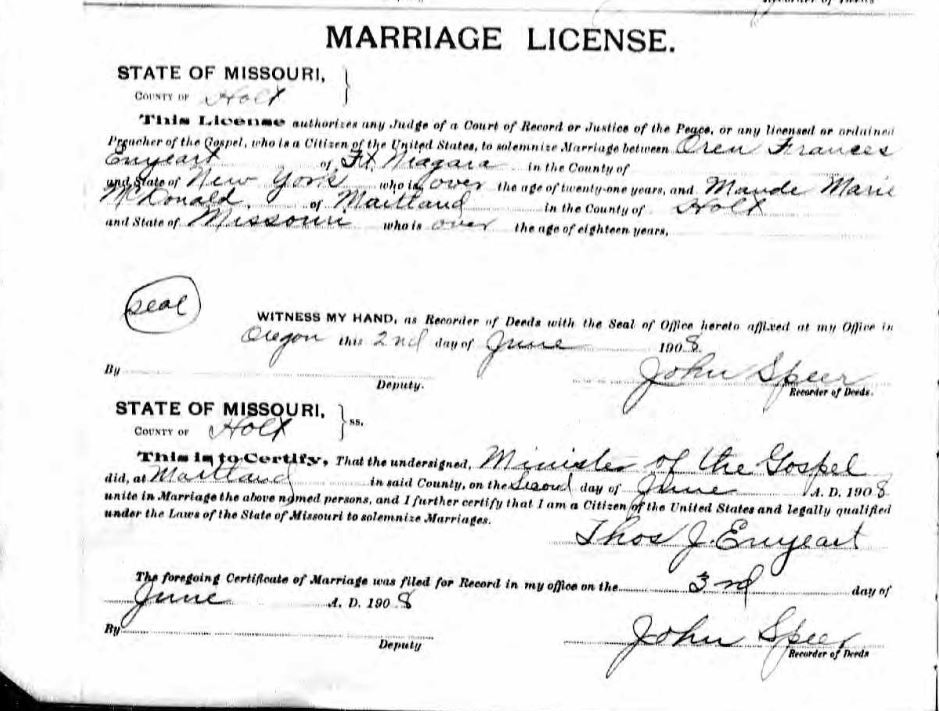 MARRIAGE LICENSE.
STATE OF MISSOURI,
COUNTY OF Holt
This License authorizes any Judge of a Court of Record or Justice of the Peace, or any licensed or ordained
Preacher of the Gospel, who is a Citizen of the United States, to solemnize Marriage between Oren Frances
Enyeart of Ft. Niagara in the County of
and State of New York who is over the age of twenty-one years, and Maude Marie
McDonald of Maitland in the County of Holt
and State of Missouri who is over the age of eighteen years.
seal
WITNESS MY HAND, as Recorder of Deeds with the Seal of Office hereto affixed at my Office in
Oregon this 2nd day of June 1908.
By John Speer
Deputy. Recorder of Deeds.
STATE OF MISSOURI,
COUNTY OF Holt ss.
This is to Certify, That the undersigned, Minister of the Gospel
did, at Maitland in said County, on the Second day of June A. D. 1908
unite in Marriage the above named persons, and I further certify that I am a Citizen of the United States and legally qualified
under the Laws of the State of Missouri to solemnize Marriages.
Thos J. Enyeart
The foregoing Certificate of Marriage was filed for Record in my office on the 3rd day of
June A. D. 1908
By John Speer
Deputy Recorder of Deeds